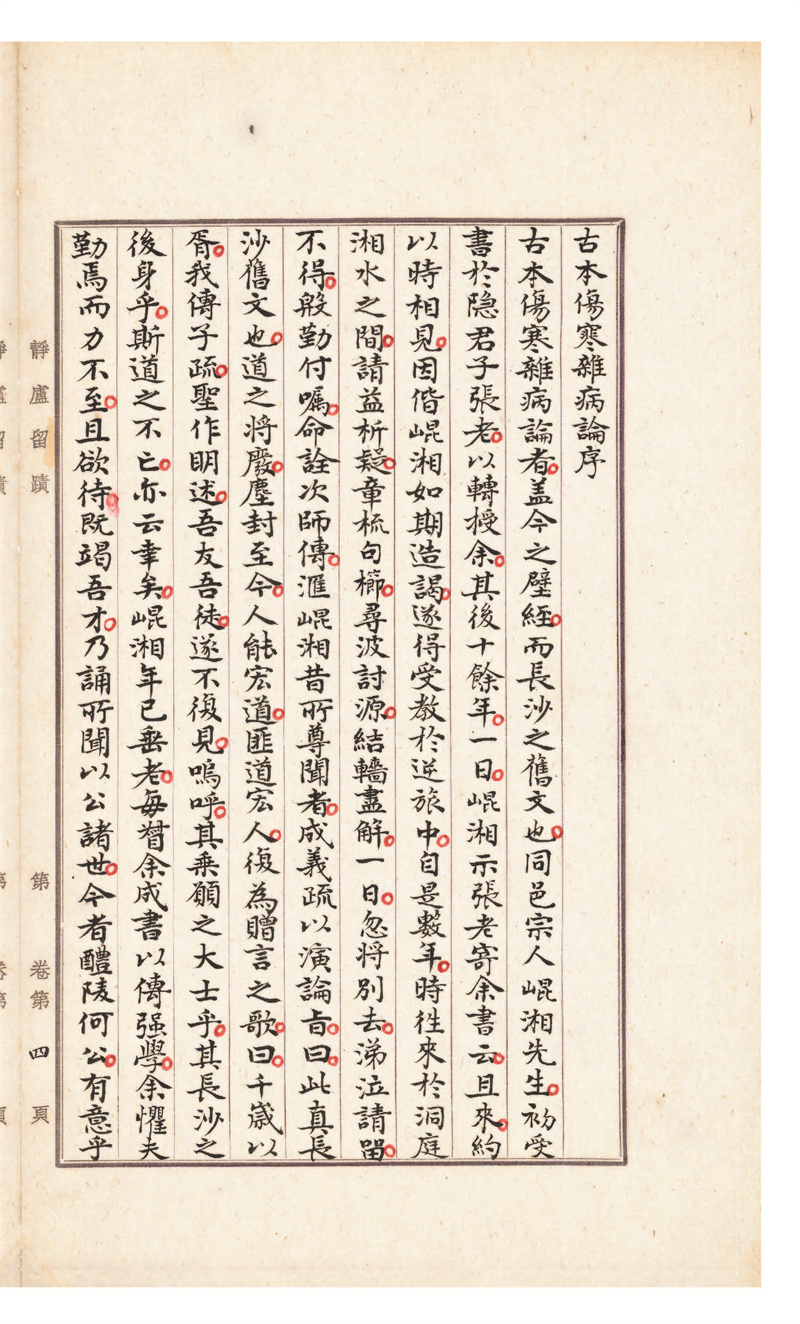 古本傷寒雜病論序
古本傷寒雜病論者。蓋今之壁經。而長沙之舊文也。同邑宗人崐湘先生。初受
書於隐君子張老。以轉授余。其後十餘年。一日。崐湘示張老寄余書云。且來。約
以時相見。因偕崐湘如期造謁。遂得受教於逆旅中。自是數年。時徃來於洞庭
湘水之間。請益析疑。章梳句櫛。尋波討源。結轖盡解。一日。忽將別去。涕泣請畱。
不得。殷勤付囑。命詮次師傳。滙崐湘昔所尊聞者。成義疏以演論旨。曰。此真長
沙舊文也。道之將廢。塵封至今。人能宏道。匪道宏人。復為贈言之歌。曰。千歲以
胥。我傳子疏。聖作明述。吾友吾徒。遂不復見。嗚呼。其乘願之大士乎。其長沙之
後身乎。斯道之不亡。亦云幸矣。崐湘年已垂老。每督余成書以傳强學。余懼夫
勤焉而力不至。且欲待。既竭吾才。乃誦所聞以公諸世。今者醴陵何公。有意乎
靜廬留蹟
第 卷第 四 頁